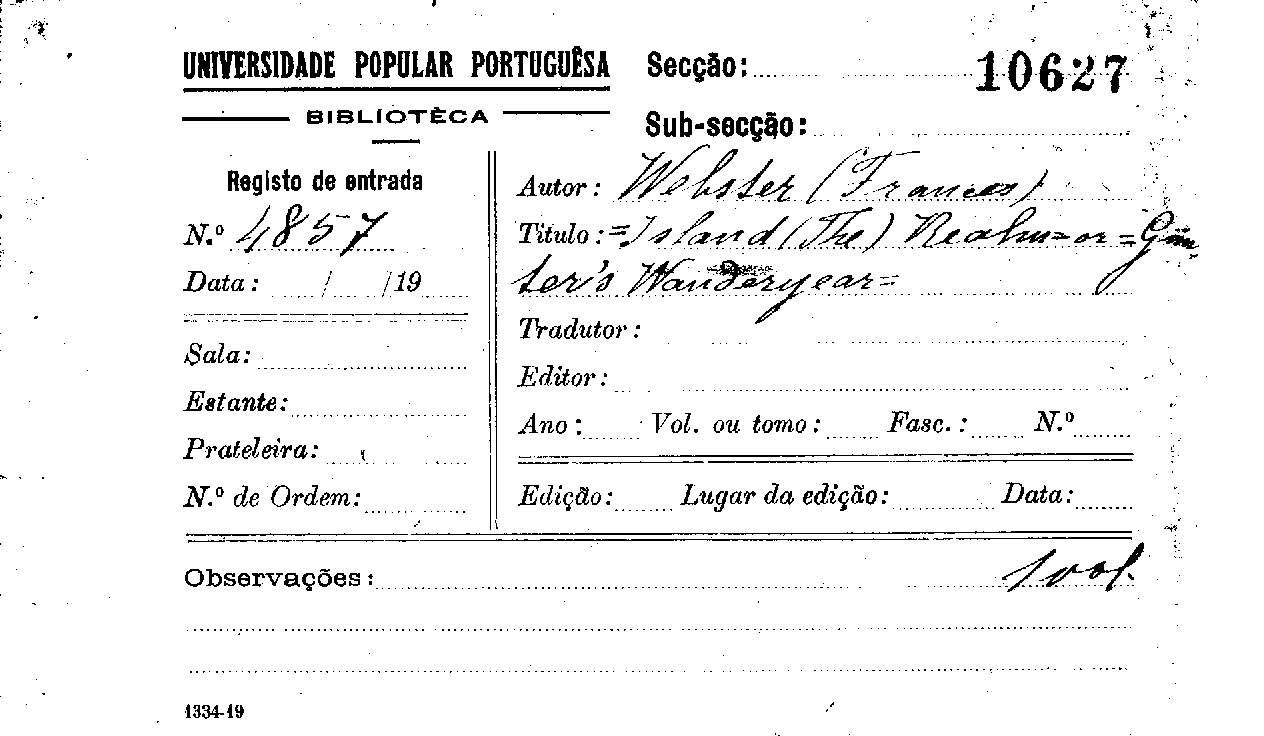 UNIVERSIDADE POPULAR PORTUGUÊSA
BIBLIOTÈCA
Secção: 10627
Sub-secção:
Registo de entrada
N.º 4857
Data: / /19
Sala:
Estante:
Prateleira:
N.º de Ordem:
Autor: Webster (Frances)
Titulo: =Island (The) Realm=or=Gün-
ter's Wanderyear=
Tradutor:
Editor:
Ano: Vol. ou tomo: Fasc.: N.º
Edição: Lugar da edição: Data:
Observações: 1 vol.
1334-19